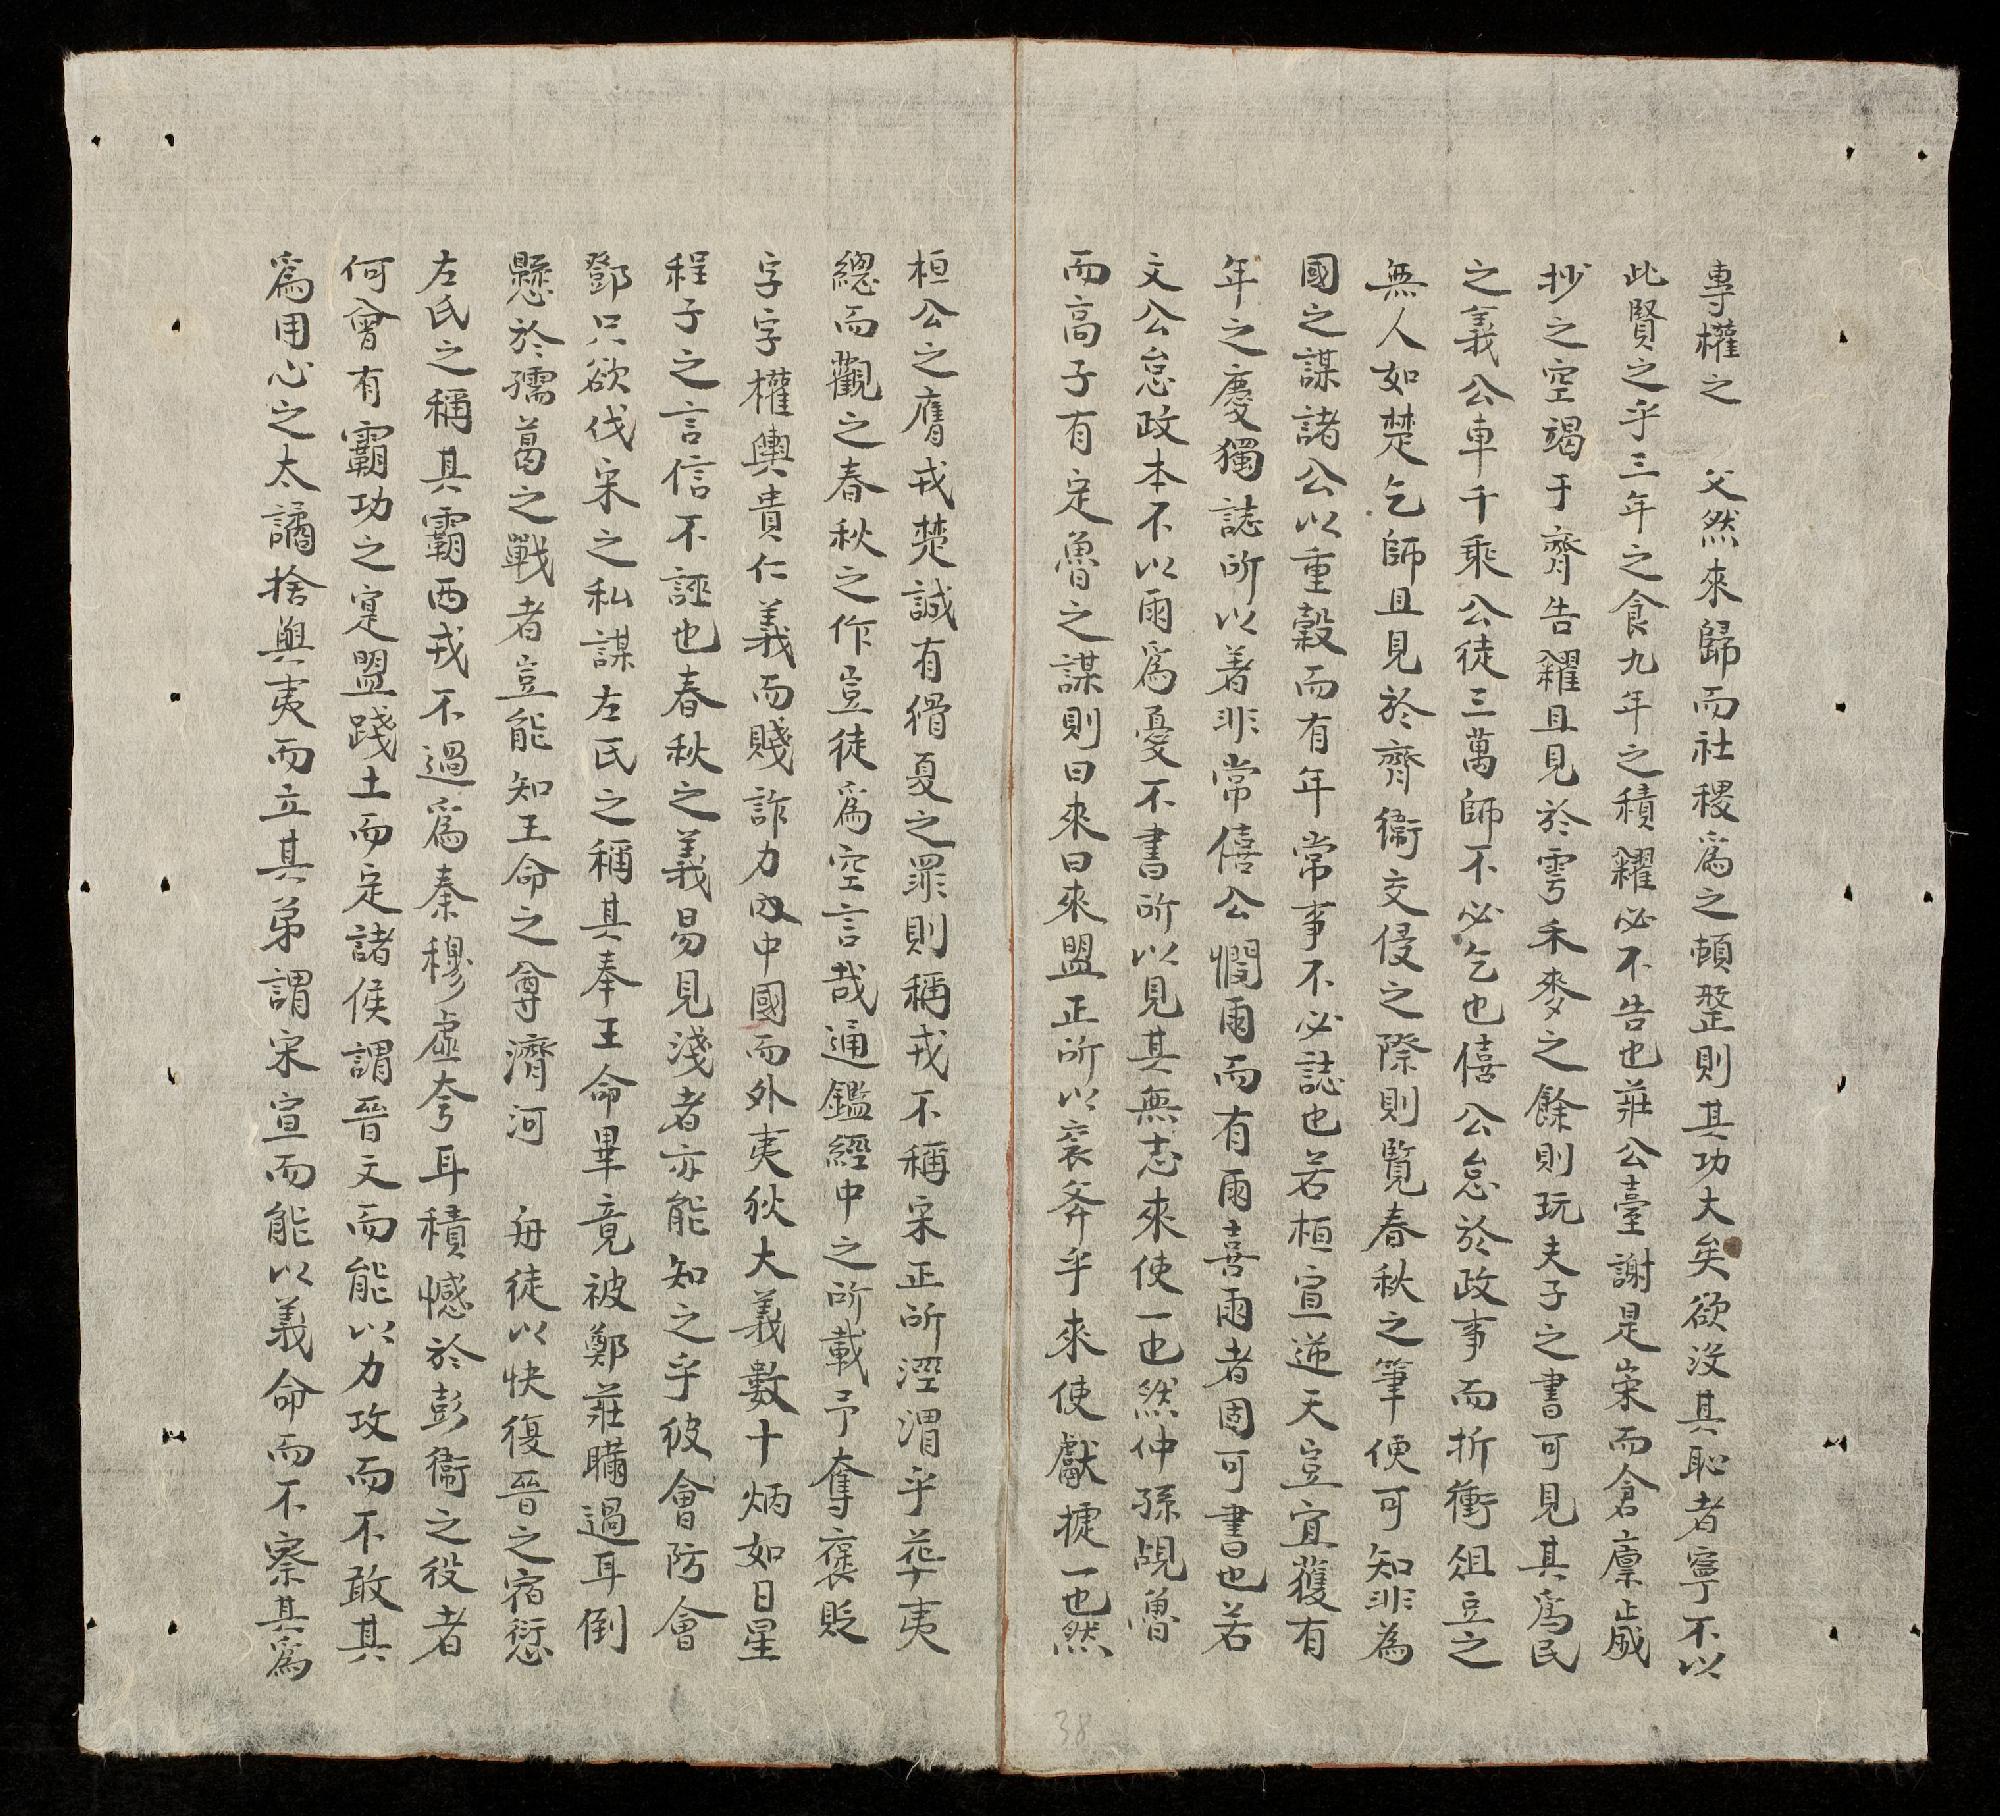 專權之 父然來歸而社稷為之頓整則其功大矣欲沒其恥者寧不以
此賢之乎三年之食九年之積糴必不告也莊公臺謝是崇而倉廩歲
抄之空竭于齊告糴且見於雩禾麥之餘則玩夫子之書可見其為民
之義公車千乘公徒三萬師不必乞也僖公怠於政事而折衝俎豆之
無人如楚乞師且見於齊衛交侵之際則覽春秋之筆便可知非為
國之謀諸公以重穀而有年常事不必誌也若桓宣逆天豈宜獲有
年之慶獨誌所以著非常僖公憫雨而有雨喜雨者固可書也若
文公怠政本不以雨為憂不書所以見其無志來使一也然仲孫覘魯
而高子有定魯之謀則曰來曰來盟正所以袞斧乎來使獻捷一也然
桓公之膺戎楚誠有猾夏之罪則稱戎不稱宋正所涇渭乎華夷
總而觀之春秋之作豈徒為空言哉通鑑經中之所載予奪褒貶
字字權輿貴仁義而賤詐力內中國而外夷狄大義數十炳如日星
程子之言信不誣也春秋之義易見淺者亦能知之乎彼會防會
鄧只欲伐宋之私謀左氏之稱其奉王命畢竟被鄭莊瞞過耳倒
懸於繻葛之戰者豈能知王命之尊濟河 舟徒以快復晉之宿愆
左氏之稱其霸西戎不過為秦穆虛夸耳積憾於彭衙之役者
何曾有霸功之寔盟踐土而定諸侯謂晉文而能以力攻而不敢其
為用心之太譎捨與夷而立其弟謂宋宣而能以義命而不察其為